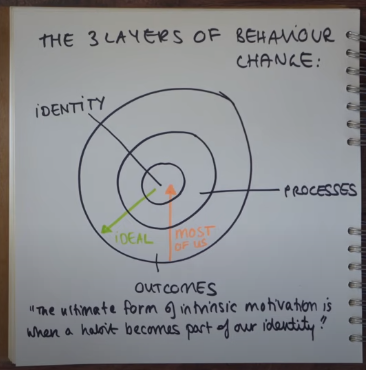 THE 3 LAYERS OF BEHAVIOUR
CHANGE:
IDENTITY
PROCESSES
IDEAL
MOST
OF US
OUTCOMES
"The ultimate form of intrinsic motivation is
when a habit becomes part of our identity."